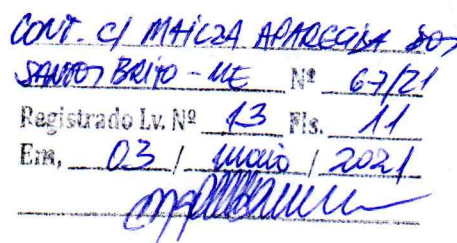 CONT. C/ MAICZA APARECIDA DOS
SANTOS BRITO - ME Nº 67/21
Registrado Lv. Nº 13 Fls. 11
Em, 03 / maio / 2021